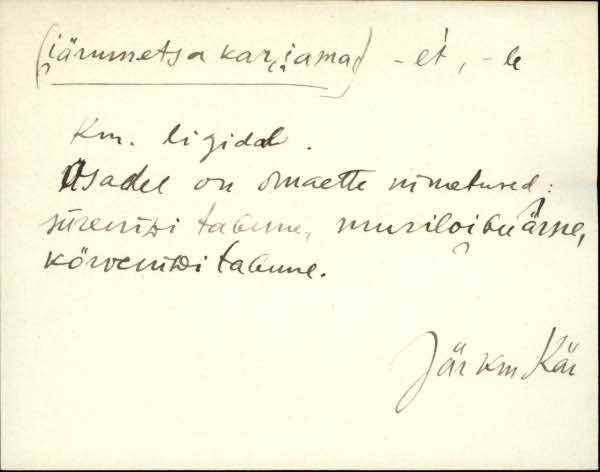 (i̯ärvmetsa kari̯amaa) -et, -le
Km. ligidal.
Osadel on omaette nimetused:
sirenidi tabune, muriloi̯bu ärne,
kõrvenidi tabune.
Jär Km Kär